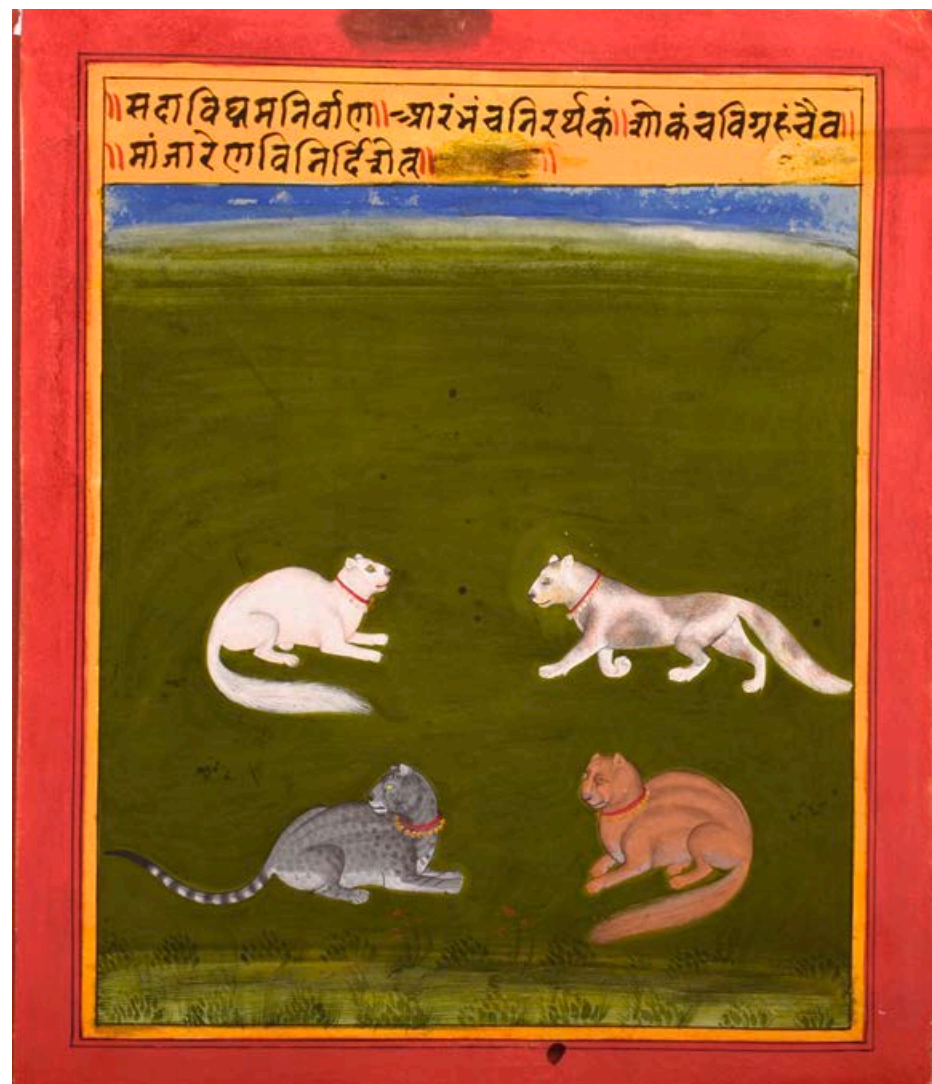 ॥सदाविघ्नमनिर्वाण॥प्रारंभंचनिरर्थकं॥शोकंचविग्रहंचैव॥
॥मांजारेणविनिर्दिशेत्॥ ॥